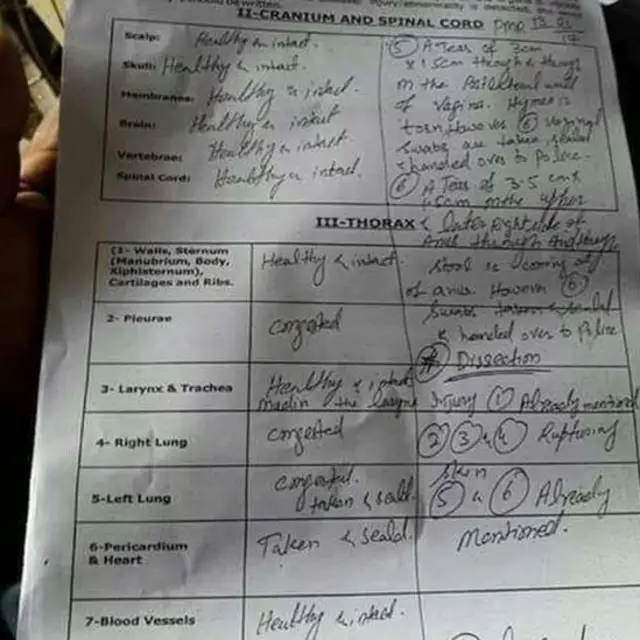 II-CRANIUM AND SPINAL CORD
Scalp: Healthy & intact.
Skull: Healthy & intact.
Membranes: Healthy & intact.
Brain: Healthy & intact
Vertebrae: Healthy & intact.
Spinal Cord: Healthy & intact.
⑤ A Tear of 3cm
x 1.5cm through & through
in the Posterior wall
of vagina. Hymen is
torn, However ⑥ vaginal
Swabs are taken sealed
& handed over to Police-
A Tear of 3.5 cm x
in the upper
III-THORAX
& outer right side of
Anus through & through
Stool is coming of
of anus. However ⑥
Swabs taken & sealed
& handed over to Police
Dissection
(1- Walls, Sternum
(Manubrium, Body,
Xiphisternum),
Cartilages and Ribs.
Healthy & intact.
2- Pleurae
congested
3- Larynx & Trachea
Healthy & intact
Injury ① Already mentioned
4- Right Lung
congested
② ③ & ④ Rupturing
Skin
5-Left Lung
congested.
taken & seald.
⑤ & ⑥ Already
Mentioned.
6-Pericardium
& Heart
Taken & seald.
7-Blood Vessels
Healthy & intact.